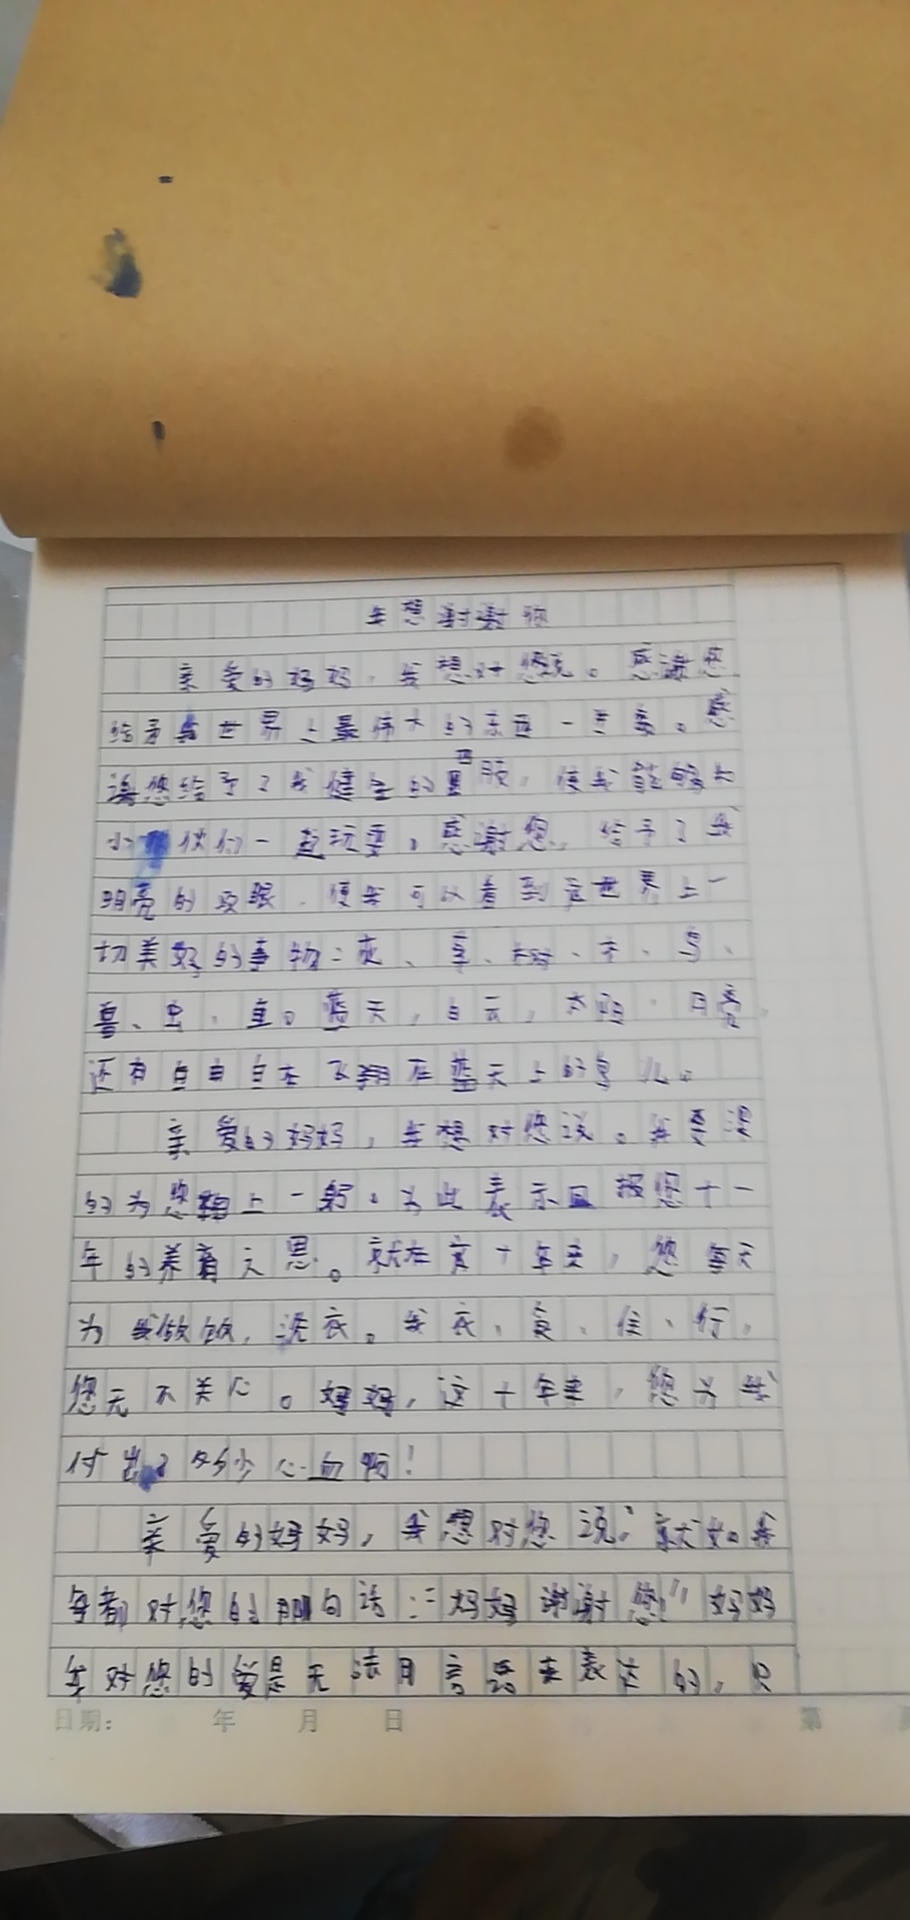 我想谢谢你
亲爱的妈妈，我想对您说。感谢您
给予我世界上最伟大的东西一生命。感
谢您给予了我健全的四肢，使我能够和
小伙们一起玩耍，感谢您，给予了我
明亮的双眼，使我可以看到这世界上一
切美好的事物：花、草、树、木、鸟、
兽、虫、鱼。蓝天，白云，太阳，月亮，
还有自由自在飞翔在蓝天上的鸟儿。
亲爱的妈妈，我想对您说。我要深
的为您上一躬。为此表示报您十一
年的养育之恩。就在这十年来，您每天
为我做饭，洗衣。我衣、食、住、行，
您无不关心。妈妈，这十年来，您为我
付出了多少心血啊！
亲爱的妈妈，我想对您说，就如我
每都对您的那句话：“妈妈谢谢您！”妈妈
我对您的爱是无法用言语来表达的，只
日期： 年 月 日 第